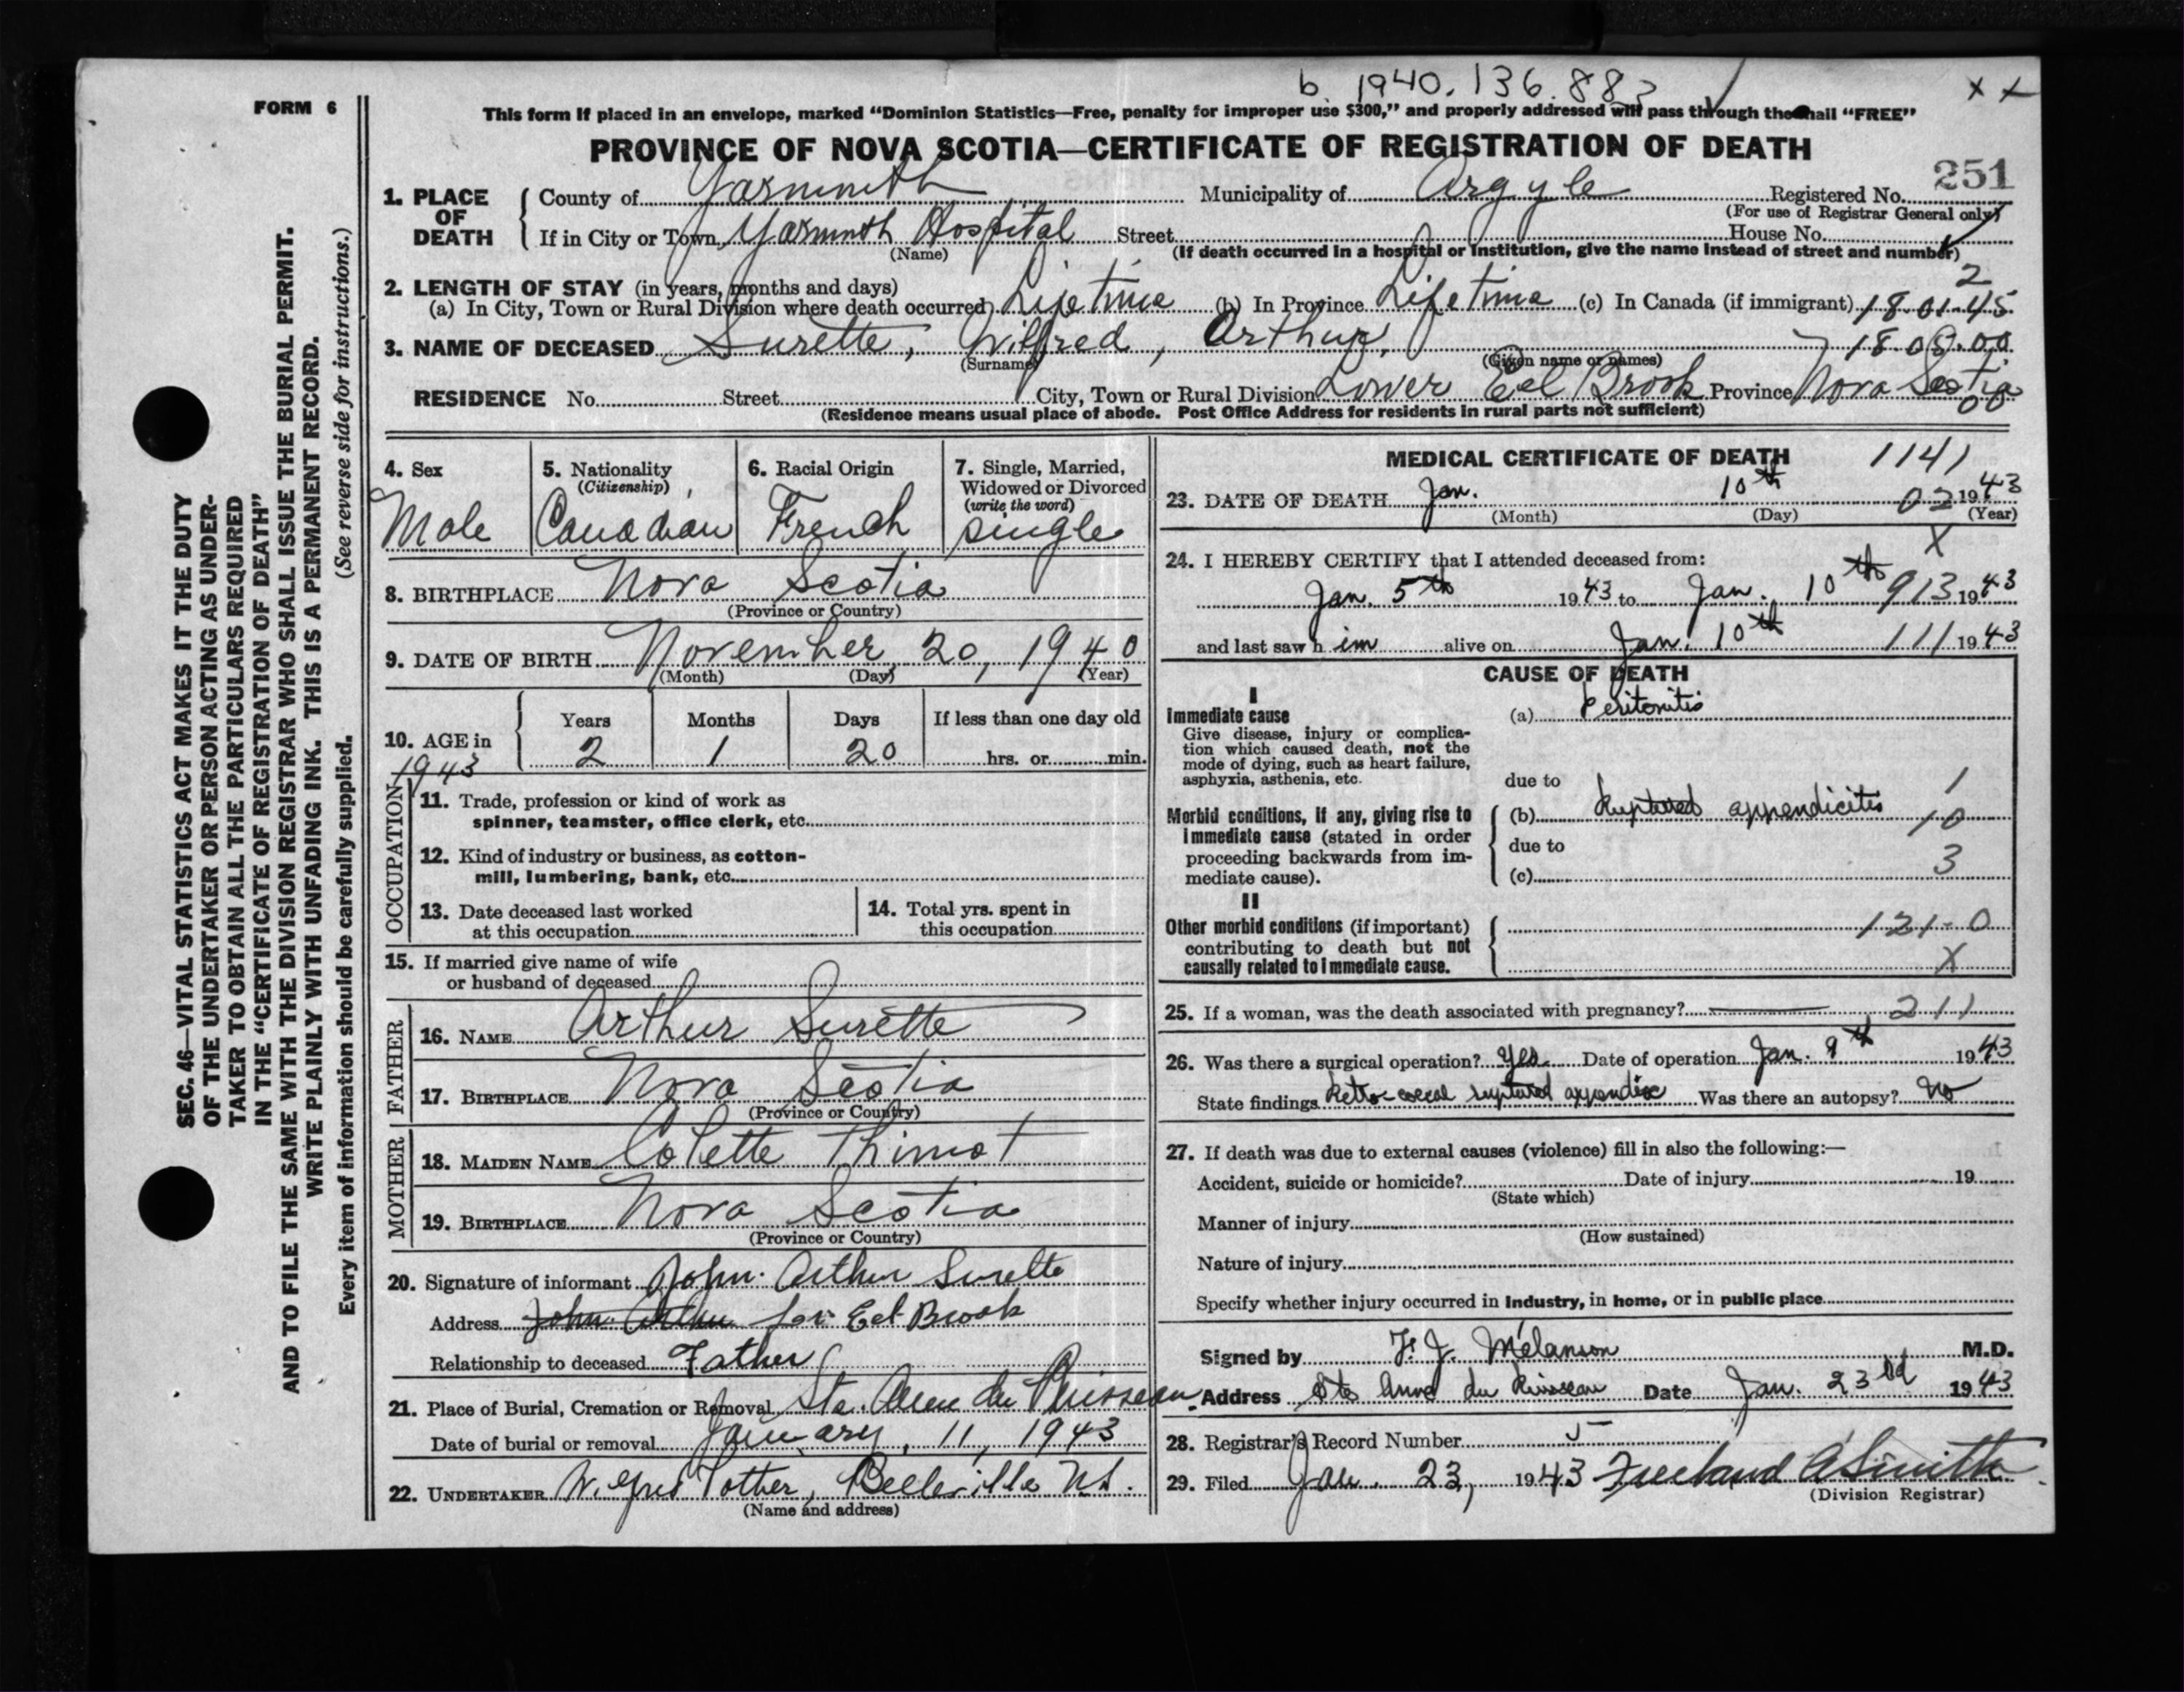 b. 1940. 136. 883
X X
FORM 6
This form if placed in an envelope, marked "Dominion Statistics—Free, penalty for improper use $300," and properly addressed will pass through the mail "FREE"
PROVINCE OF NOVA SCOTIA—CERTIFICATE OF REGISTRATION OF DEATH
251
1. PLACE OF DEATH { County of Yarmouth Municipality of Argyle Registered No.
(For use of Registrar General only)
If in City or Town Yarmouth Hospital Street House No.
(Name) (If death occurred in a hospital or institution, give the name instead of street and number)
2. LENGTH OF STAY (in years, months and days) 2
(a) In City, Town or Rural Division where death occurred Lifetime (b) In Province Lifetime (c) In Canada (if immigrant) 18.01.45
3. NAME OF DECEASED Surette, Wilfred, Arthur, 18.08.00
(Surname) (Given name or names)
RESIDENCE No. Street City, Town or Rural Division Lower Eel Brook Province Nova Scotia
00
(Residence means usual place of abode. Post Office Address for residents in rural parts not sufficient)
4. Sex
Male
5. Nationality
(Citizenship)
Canadian
6. Racial Origin
French
7. Single, Married, Widowed or Divorced
(write the word)
single
8. BIRTHPLACE Nova Scotia
(Province or Country)
9. DATE OF BIRTH November, 20, 1940
(Month) (Day) (Year)
10. AGE in 1943 { Years Months Days If less than one day old
2 1 20 hrs. or min.
OCCUPATION
11. Trade, profession or kind of work as
spinner, teamster, office clerk, etc.
12. Kind of industry or business, as cotton-
mill, lumbering, bank, etc.
13. Date deceased last worked
at this occupation
14. Total yrs. spent in
this occupation
15. If married give name of wife
or husband of deceased
FATHER
16. NAME Arthur Surette
17. BIRTHPLACE Nova Scotia
(Province or Country)
MOTHER
18. MAIDEN NAME Colette Thimot
19. BIRTHPLACE Nova Scotia
(Province or Country)
20. Signature of informant John Arthur Surette
Address John Arthur Eel Brook
Relationship to deceased Father
21. Place of Burial, Cremation or Removal Ste. Anne du Ruisseau
Date of burial or removal January, 11, 1943
22. UNDERTAKER Wilfred Pother, Belleville N.S.
(Name and address)
MEDICAL CERTIFICATE OF DEATH 1141
23. DATE OF DEATH Jan. 10th 02 1943
(Month) (Day) (Year)
X
24. I HEREBY CERTIFY that I attended deceased from:
Jan. 5th 1943 to Jan. 10th 913 1943
and last saw h im alive on Jan. 10th 111 1943
CAUSE OF DEATH
I
Immediate cause (a) Peritonitis
Give disease, injury or complica-
tion which caused death, not the
mode of dying, such as heart failure,
asphyxia, asthenia, etc.
due to 1
Morbid conditions, if any, giving rise to (b) Ruptured appendicitis 10
immediate cause (stated in order
proceeding backwards from im- due to
mediate cause). (c) 3
II
Other morbid conditions (if important) 121-0
contributing to death but not
causally related to immediate cause. X
25. If a woman, was the death associated with pregnancy? 211
26. Was there a surgical operation? Yes. Date of operation Jan. 9th 1943
State findings Retro-coecal ruptured appendix Was there an autopsy? No
27. If death was due to external causes (violence) fill in also the following:—
Accident, suicide or homicide? Date of injury 19
(State which)
Manner of injury
(How sustained)
Nature of injury
Specify whether injury occurred in industry, in home, or in public place
Signed by F. J. Mélanson M.D.
Address Ste Anne du Ruisseau Date Jan. 23rd 1943
28. Registrar's Record Number 5
29. Filed Jan. 23, 1943 Freeland A Smith
(Division Registrar)
SEC. 46—VITAL STATISTICS ACT MAKES IT THE DUTY
OF THE UNDERTAKER OR PERSON ACTING AS UNDER-
TAKER TO OBTAIN ALL THE PARTICULARS REQUIRED
IN THE "CERTIFICATE OF REGISTRATION OF DEATH"
AND TO FILE THE SAME WITH THE DIVISION REGISTRAR WHO SHALL ISSUE THE BURIAL PERMIT.
WRITE PLAINLY WITH UNFADING INK. THIS IS A PERMANENT RECORD.
Every item of information should be carefully supplied. (See reverse side for instructions.)